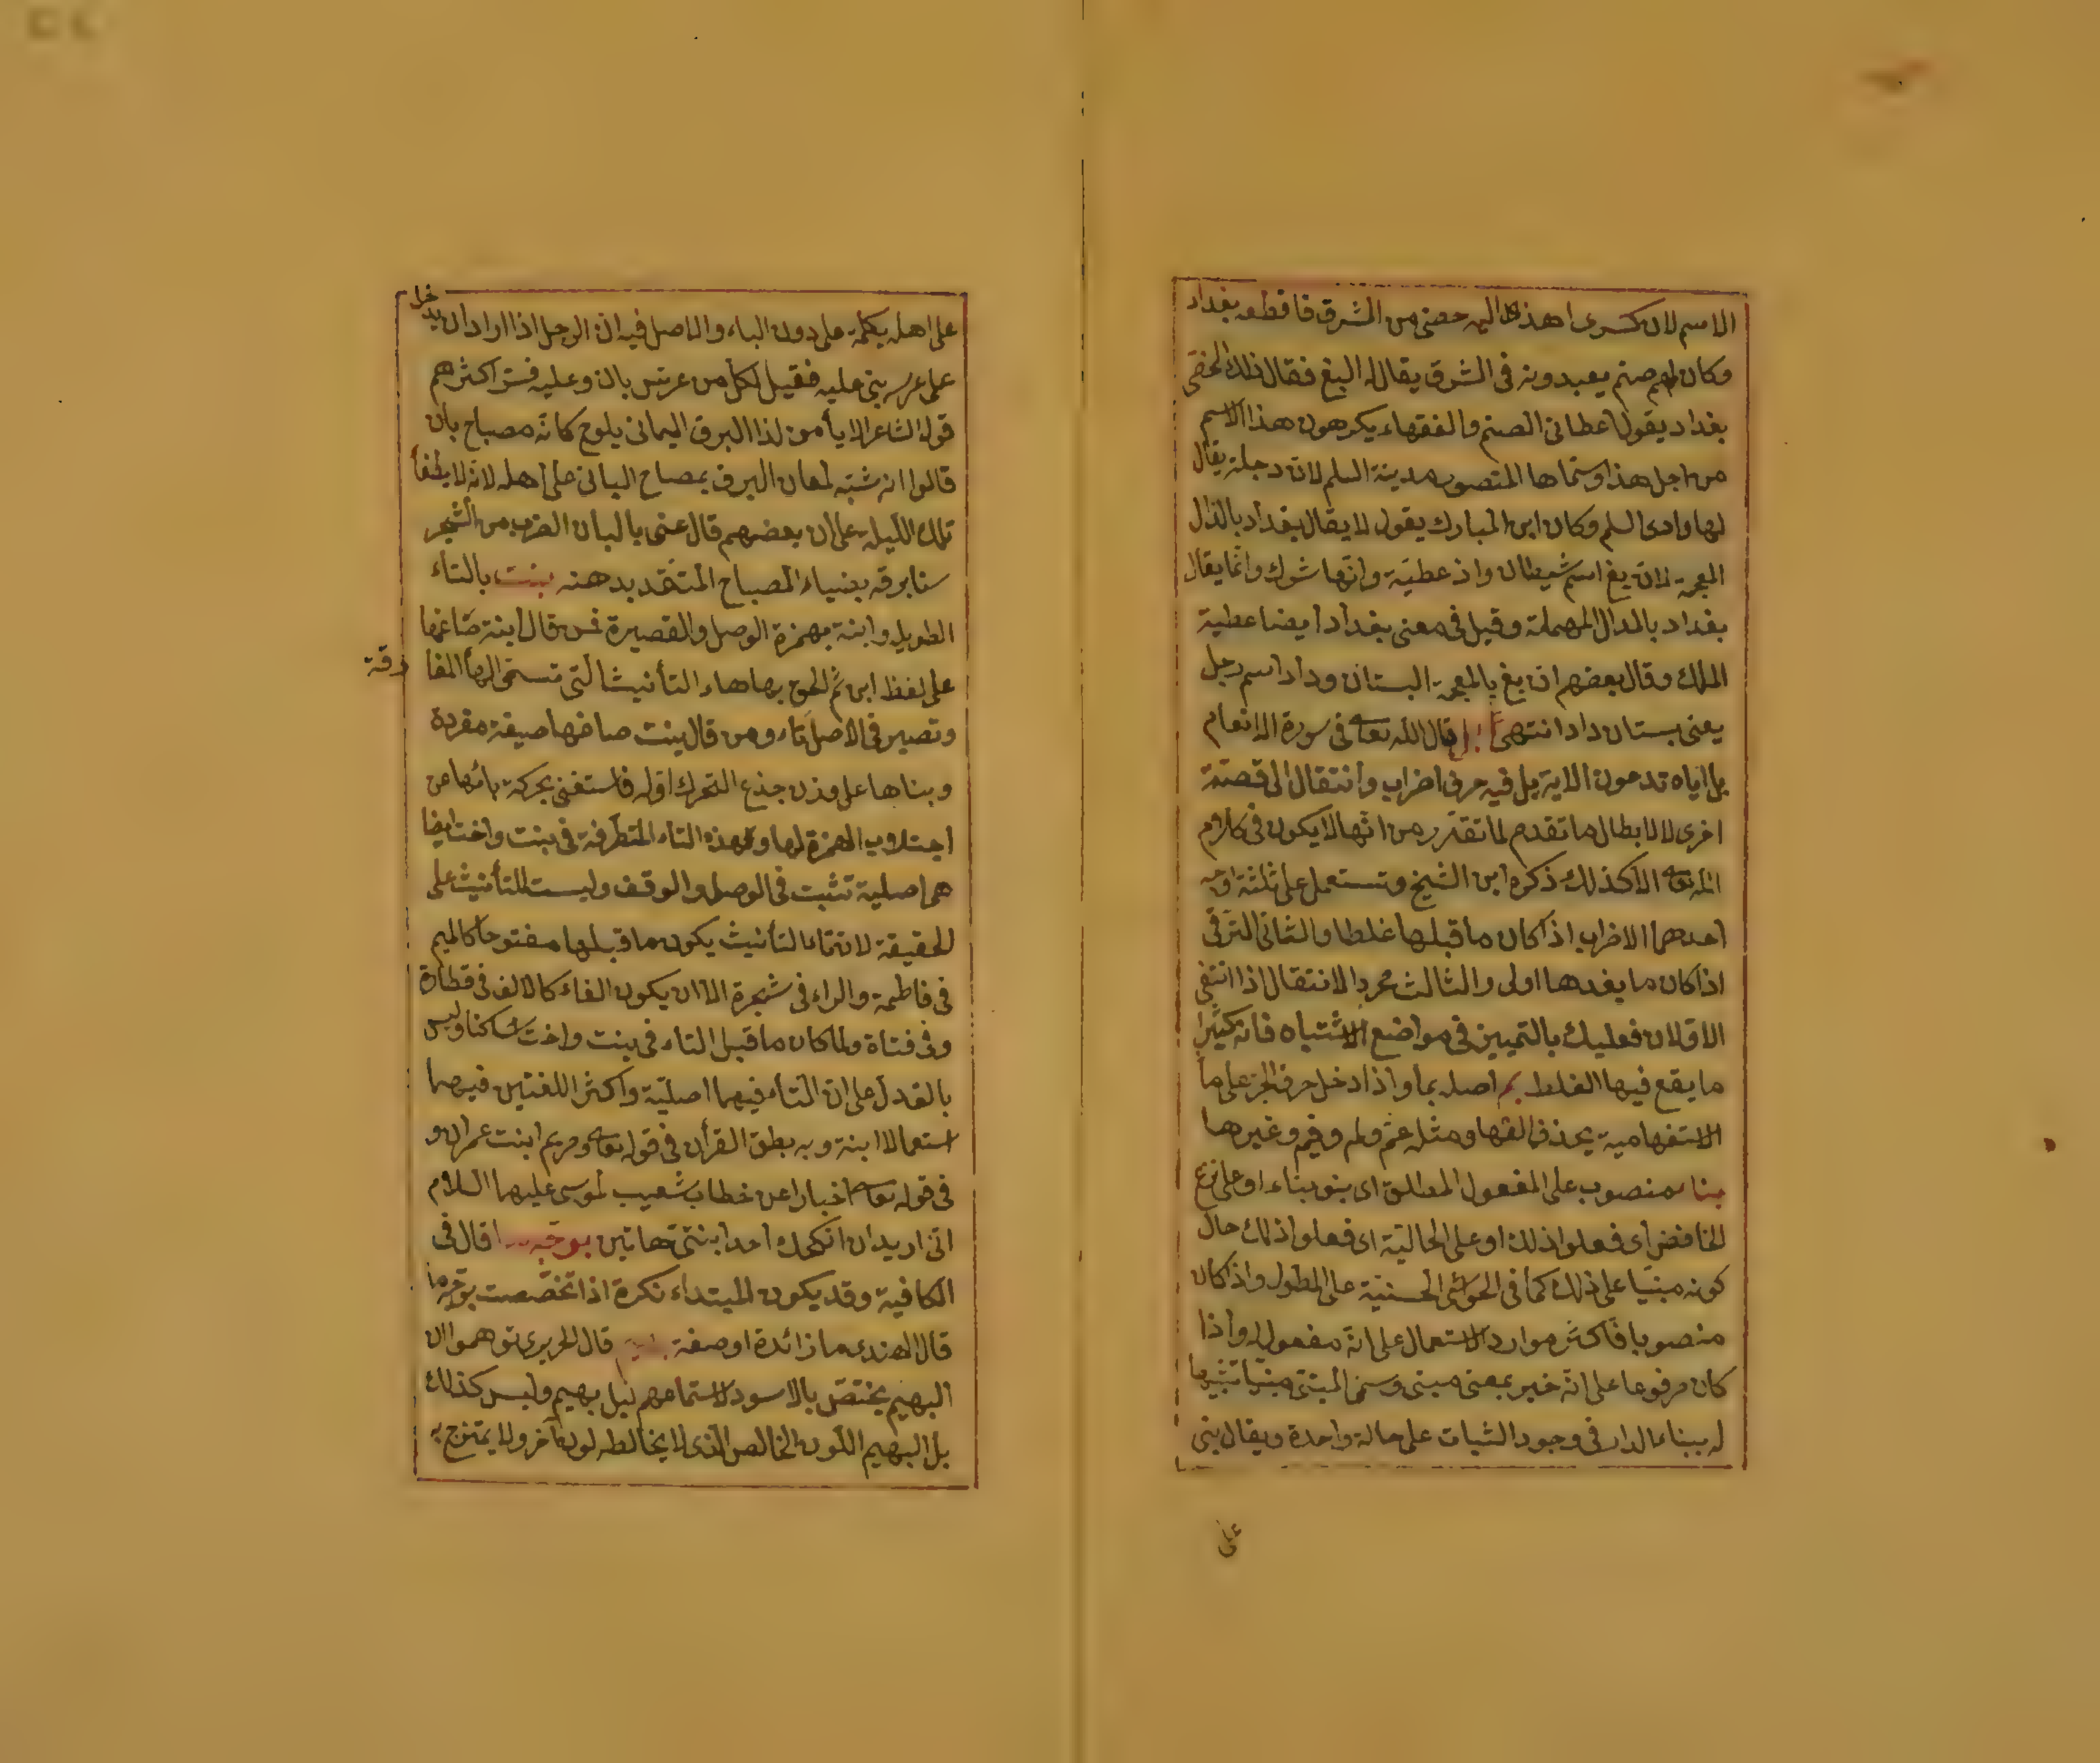 الاسم لان كسرى اهدى اليه خصى من الشرق فاقطعه بغداد
وكان لهم صنم يعبدونه فى الشرق يقال له البغ فقال ذلك الخصى
بغداد يقول اعطانى الصنم والفقهاء يكرهون هذا الاسم
من اجل هذا وسماها المنصور مدينة السلم لان دجلة يقال
لها وادى السلم وكان ابن المبارك يقول لا يقال بغداذ بالذال
المعجمة لان بغ اسم شيطان وداذ عطية وانها شرك وانما يقال
بغداد بالدال المهملة وقيل فى معنى بغداد ايضا عطية
الملك وقال بعضهم ان بغ بالمعجمة البستان وداد اسم رجل
يعنى بستان داد انتهى بل قال الله تعالى فى سورة الانعام
بل اياه تدعون الاية بل فيه حرف اضراب وانتقال الى قصة
اخرى لا لابطال ما تقدم لما تقرر من انها لا يكون فى كلام
الله تعالى الا كذلك ذكره ابن الشيخ وتستعمل على ثلثة اوجه
احدهما الاضراب اذا كان ما قبلها غلطا والثانى الترقى
اذا كان ما بعدها اولى والثالث مجرد الانتقال اذا انتفى
الاولان فعليك بالتمييز فى مواضع الاشتباه فانه كثيرا
ما يقع فيها الغلط بم اصله بما واذا دخل حرف الجر على ما
الاستفهامية يحذف الفها ومثله عم ولم وفيم وغيرها
بناء منصوب على المفعول المطلق اى بنو بناء او على نزع
الخافض اى فعلوا ذلك او على الحالية اى فعلوا ذلك حال
كونه مبنيا على ذلك كما فى الحواشى الحسنية على المطول واذا كان
منصوبا فاكثر موارد الاستعمال على انه مفعول له واذا
كان مرفوعا على انه خبر بمعنى مبنى وسمى المبنى مبنيا تشبيها
له ببناء الدار فى وجود الثبات على حالة واحدة ويقال بنى
على
على اهله بكلمة على دون الباء والاصل فيه ان الرجل اذا اراد ان يدخل
على عرسه بنى عليه فقيل لكل من عرس بان وعليه فسر اكثرهم
قول الشاعر الا يا من لذا البرق اليمانى يلوح كانه مصباح بان
قالوا انه شبه لمعان البرق بمصباح البانى على اهله لانه لا يطفأ
تلك الليلة على ان بعضهم قال عنى بالبان الضرب من الشجر
سنا برقه بضياء المصباح المتقد بدهنه بنت بالتاء
الطويل وابنة بهمزة الوصل والقصيرة فمن قال ابنة صاغها
على لفظ ابن ثم الحق بها هاء التأنيث التى تسمى الهاء الفارقة
وتصير فى الاصل تاء ومن قال بنت صاغها صيغة مفردة
وبناها على وزن جذع المتحرك اوله فاستغنى بحركة بائها عن
اجتلاب الهمزة لها وهذه التاء المتطرفة فى بنت واخت ايضا
هى اصلية تثبت فى الوصل والوقف وليست للتأنيث على
الحقيقة لان تاء التأنيث يكون ما قبلها مفتوحا كالميم
فى فاطمة والراء فى شجرة الا ان يكون الفا كالالف فى قطاة
وفى فتاة ولما كان ما قبل التاء فى بنت واخت ساكنا وليس
بالف دل على ان التاء فيهما اصلية واكثر اللغتين فيهما
استعمالا ابنة وبه نطق القرآن فى قوله تعالى ومريم ابنت عمران و
فى قوله تعالى اخبارا عن خطاب شعيب لموسى عليهما السلام
انى اريد ان انكحك احدى ابنتى هاتين بوجه ما قال فى
الكافية وقد يكون المبتداء نكرة اذا تخصصت بوجه ما
قال الهندى ما زائدة او صفة بهيم قال الحريرى توهموا ان
البهيم يختص بالاسود لاستماعهم ليل بهيم وليس كذلك
بل البهيم اللون الخالص الذى لا يخالطه لون آخر ولا يمتزج به